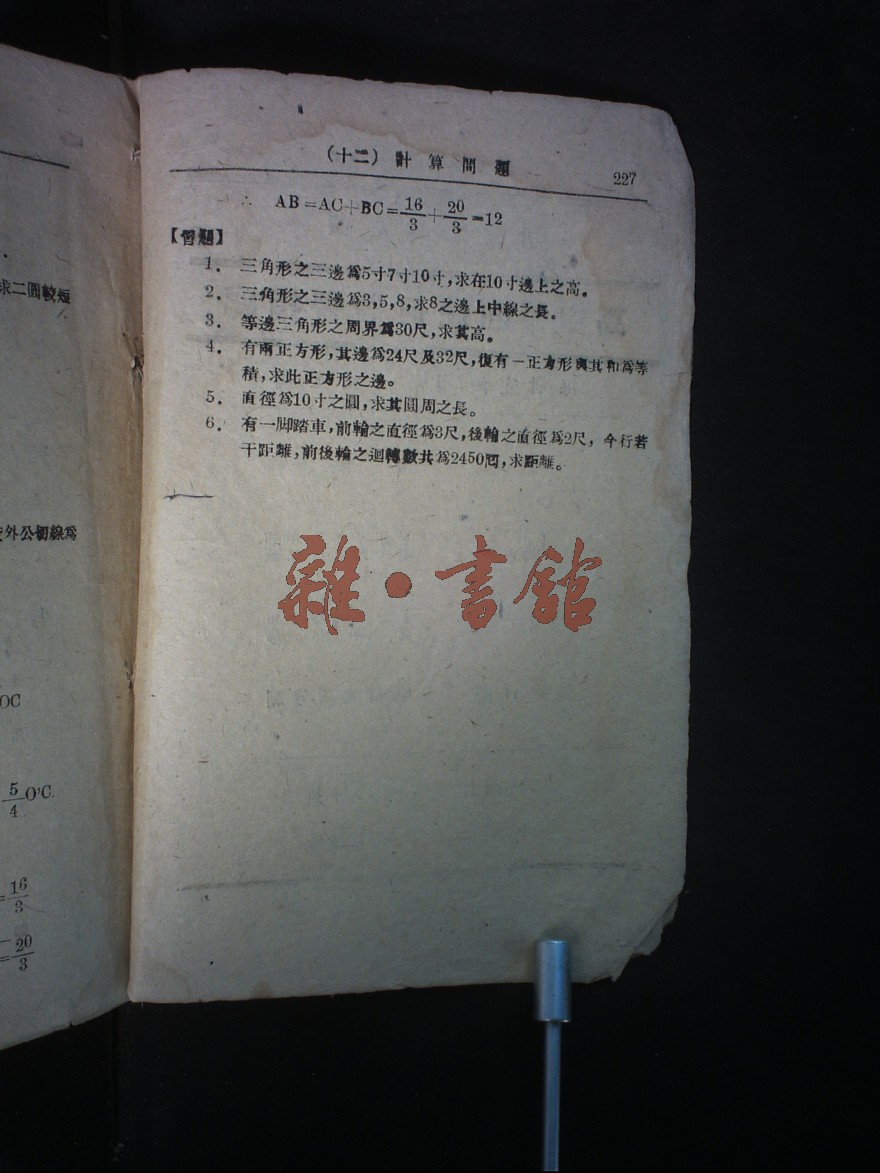 (十二) 計算問題
227
∴ AB=AC+BC=16/3+20/3=12
【習題】
1. 三角形之三邊爲5寸7寸10寸,求在10寸邊上之高。
2. 三角形之三邊爲3,5,8,求8之邊上中線之長。
3. 等邊三角形之周界爲30尺,求其高。
4. 有兩正方形,其邊爲24尺及32尺,復有一正方形與其和爲等
積,求此正方形之邊。
5. 直徑爲10寸之圓,求其圓周之長。
6. 有一脚踏車,前輪之直徑爲3尺,後輪之直徑爲2尺,今行若
干距離,前後輪之迴轉數共爲2450囘,求距離。
雜·書館
求二圓較短
外公切線爲
OC
5/4 O'C.
=16/3
=20/3